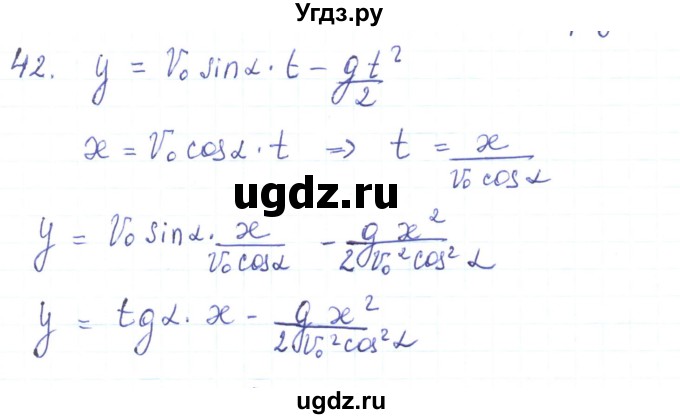 Угдз.ру
42. y = V₀ sinα · t − gt²/2
x = V₀ cosα · t ⇒ t = x/(V₀ cosα)
ugdz.ru
y = V₀ sinα · x/(V₀ cosα) − gx²/(2V₀² cos²α)
y = tgα · x − gx²/(2V₀² cos²α)
ugdz.ru